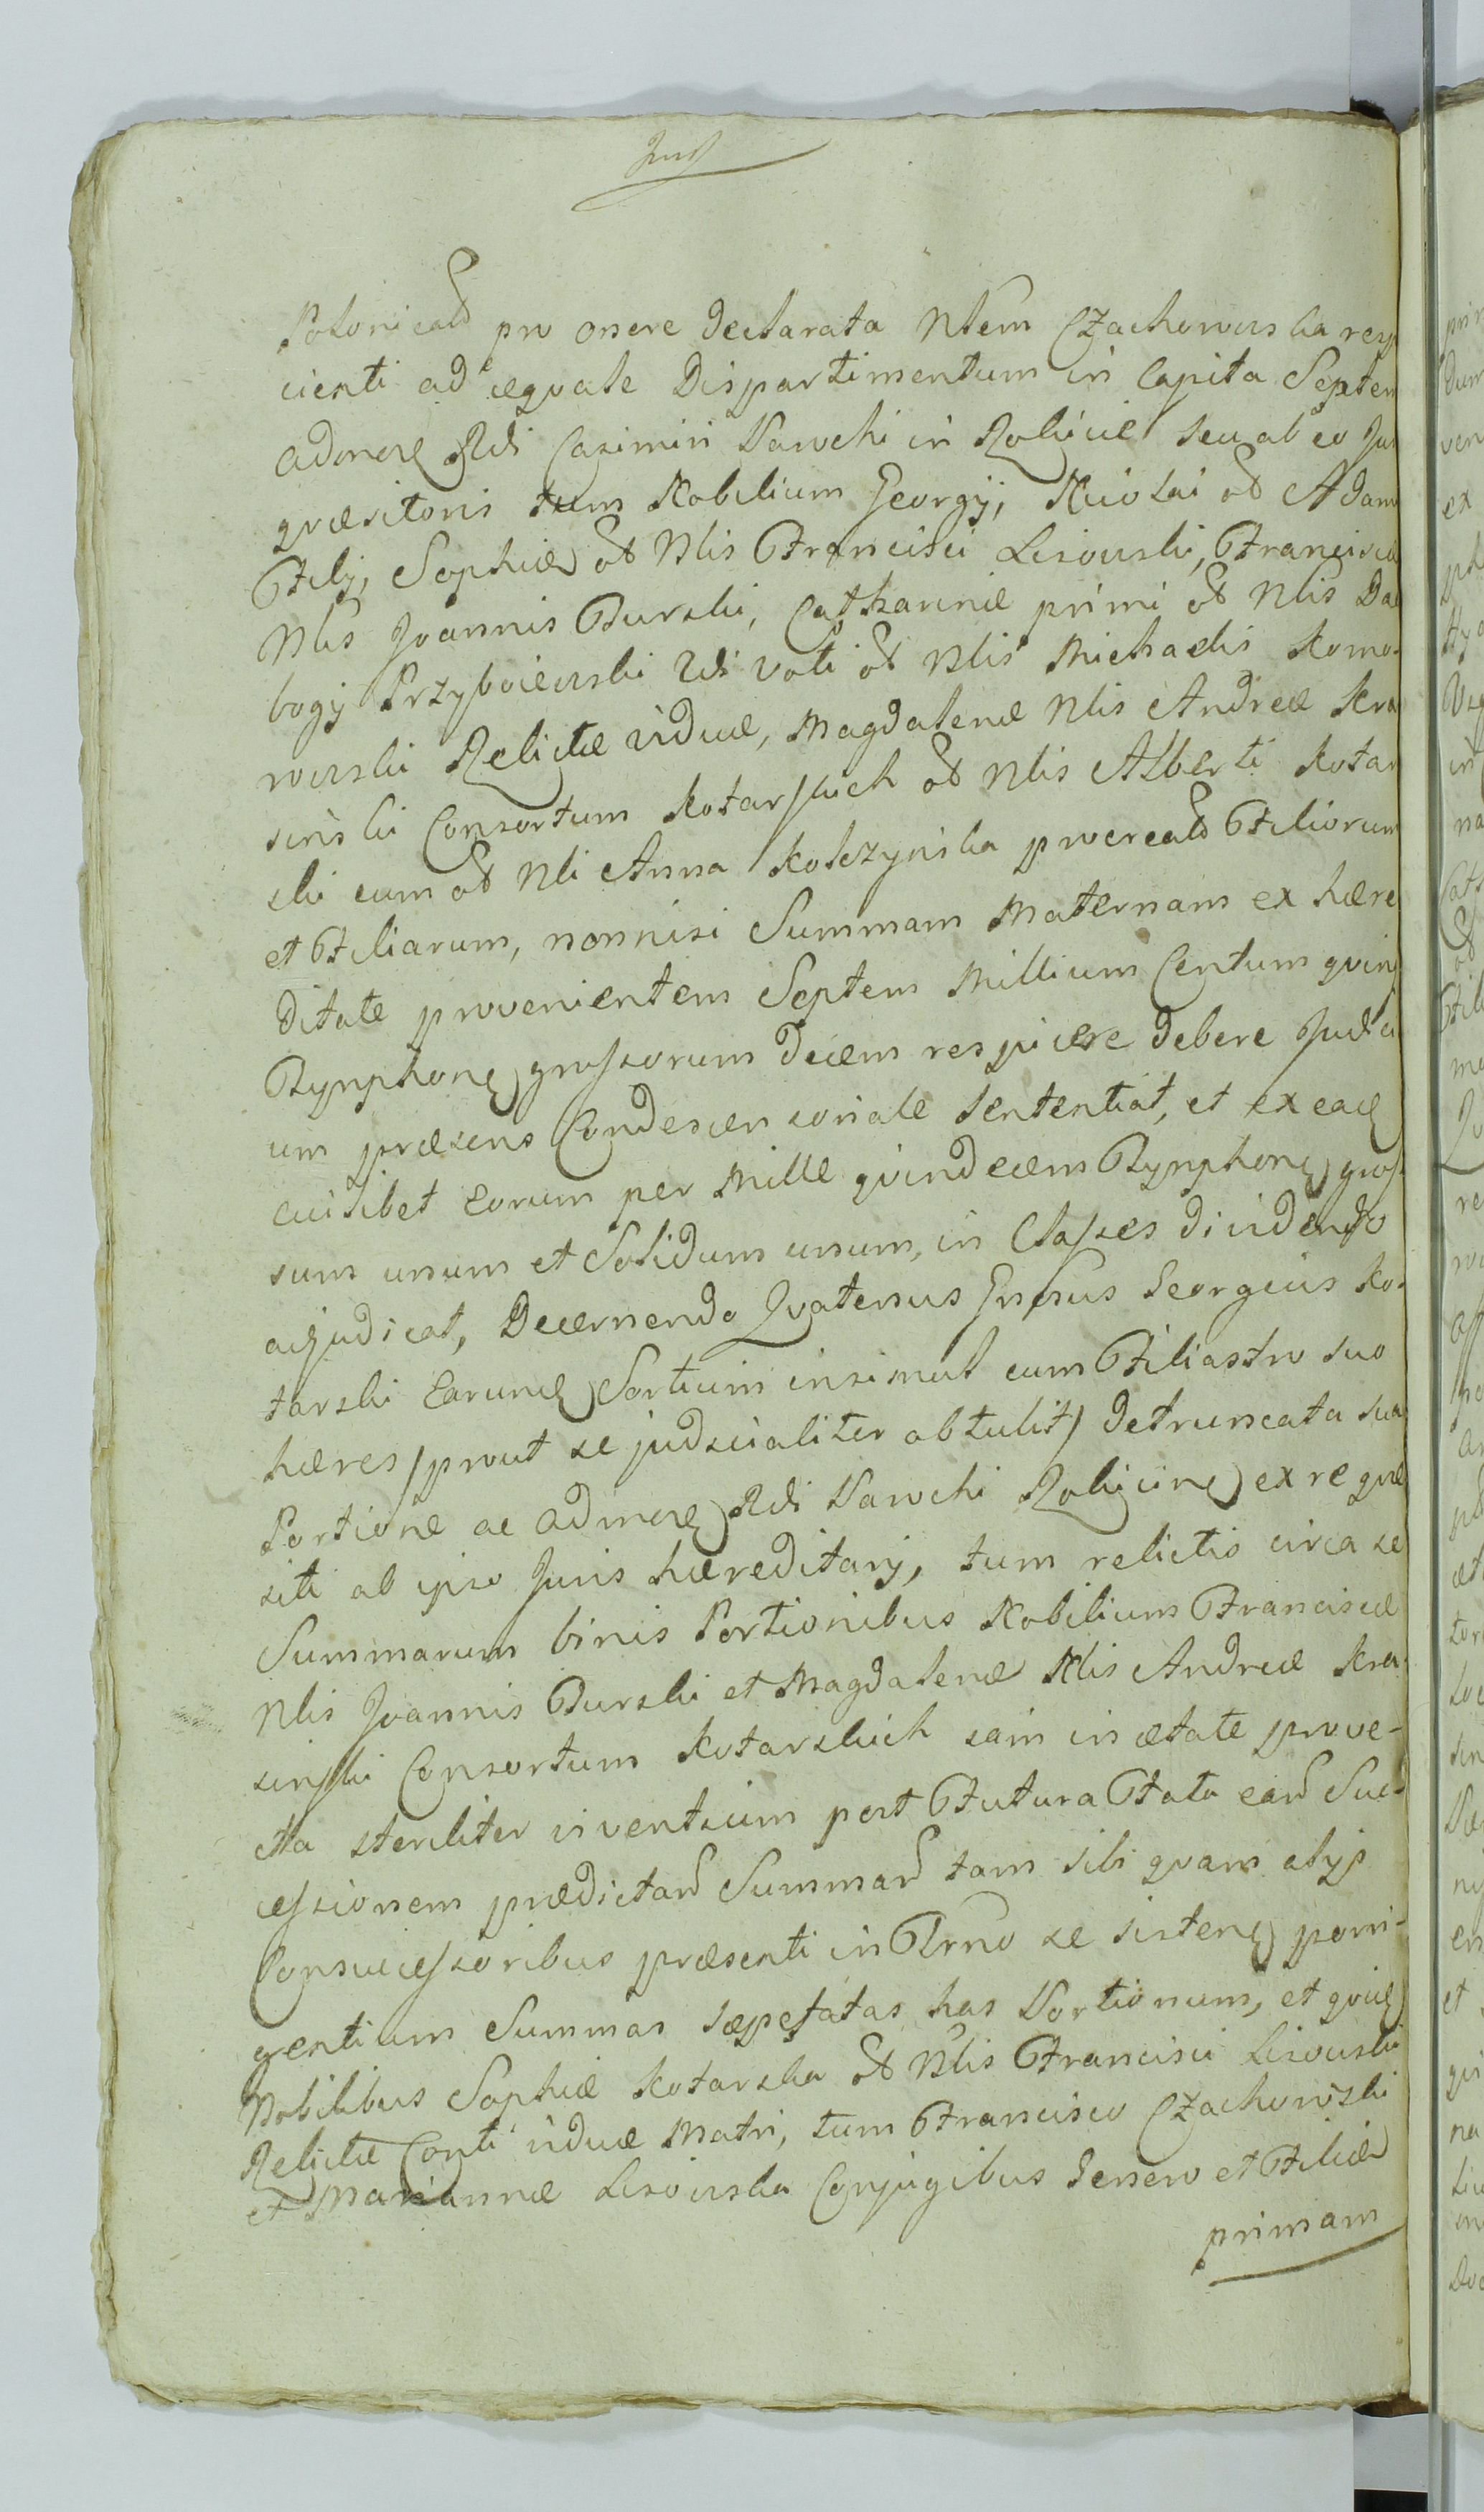 Polonicald pro onere declarata Nlem Czachowska rey
cienti ad æqvale Dispartimentum in Capita Septem
admore Rdi Casimiri Narochi in Rolicie seu ab eo Ju
qvæsitoris tum Nobilium Georgij, Nicolai od Adam
Filij, Sophiæ od Nlis Francisci Lisowski, Franciscæ
Nlis Joannis Burski, Catharinæ primi od Nlis Da
bogij Przyboiewski 2di voti od Nlis Michaelis Komo-
rowski Relictæ viduæ, Magdalenæ Nlis Andreæ Kra
sinski Consortum Kotarskich od Nlis Alberti Kotar
ski cum od Nli Anna Kolczynska procreatd Filiorum
et Filiarum, nonnisi Summam Maternam ex hære
ditate provenientem Septem Millium Centum qvinq
Tynphone grossorum decem respicere debere Judici
um præsens Condescensoriale Sententiat, et ex eade
cuilibet eorum per Mille qvindecem Tynphone gros
sum unum et Solidum unum, in Classes dividendo
adjudicat, Decernendo Qvatenus Gnrosus Georgius Ko-
tarski Earunde Sortium insimul cum Filiastro suo
hæres /prout se judicialiter obtulit/ detruncata sua
Portione ac admore Rdi Narochi Rolicine ex re qvæ
siti ab ipso Juris hæreditarij, tum relictis circa se
Summarum binis Portionibus Nobilium Franciscæ
Nlis Joannis Burski et Magdalenæ Nlis Andreæ Kra-
sinski Consortum Kotarskich iam in ætate prove-
cta steriliter viventium post Futura Fata eard Suc-
cessionem prædictard Summard tam sibi qvam alijs
Consuccessoribus præsenti in Trno se sistene porri-
gentium Summas sæpefatas has Sortionum, et qvide
Nobilibus Sophiæ Kotarska od Nlis Francisci Lisowski
Relictæ Conti viduæ Matri, tum Francisco Czachowski
et Mariannæ Lisowska Conjugibus Genero et Filiæ
primam